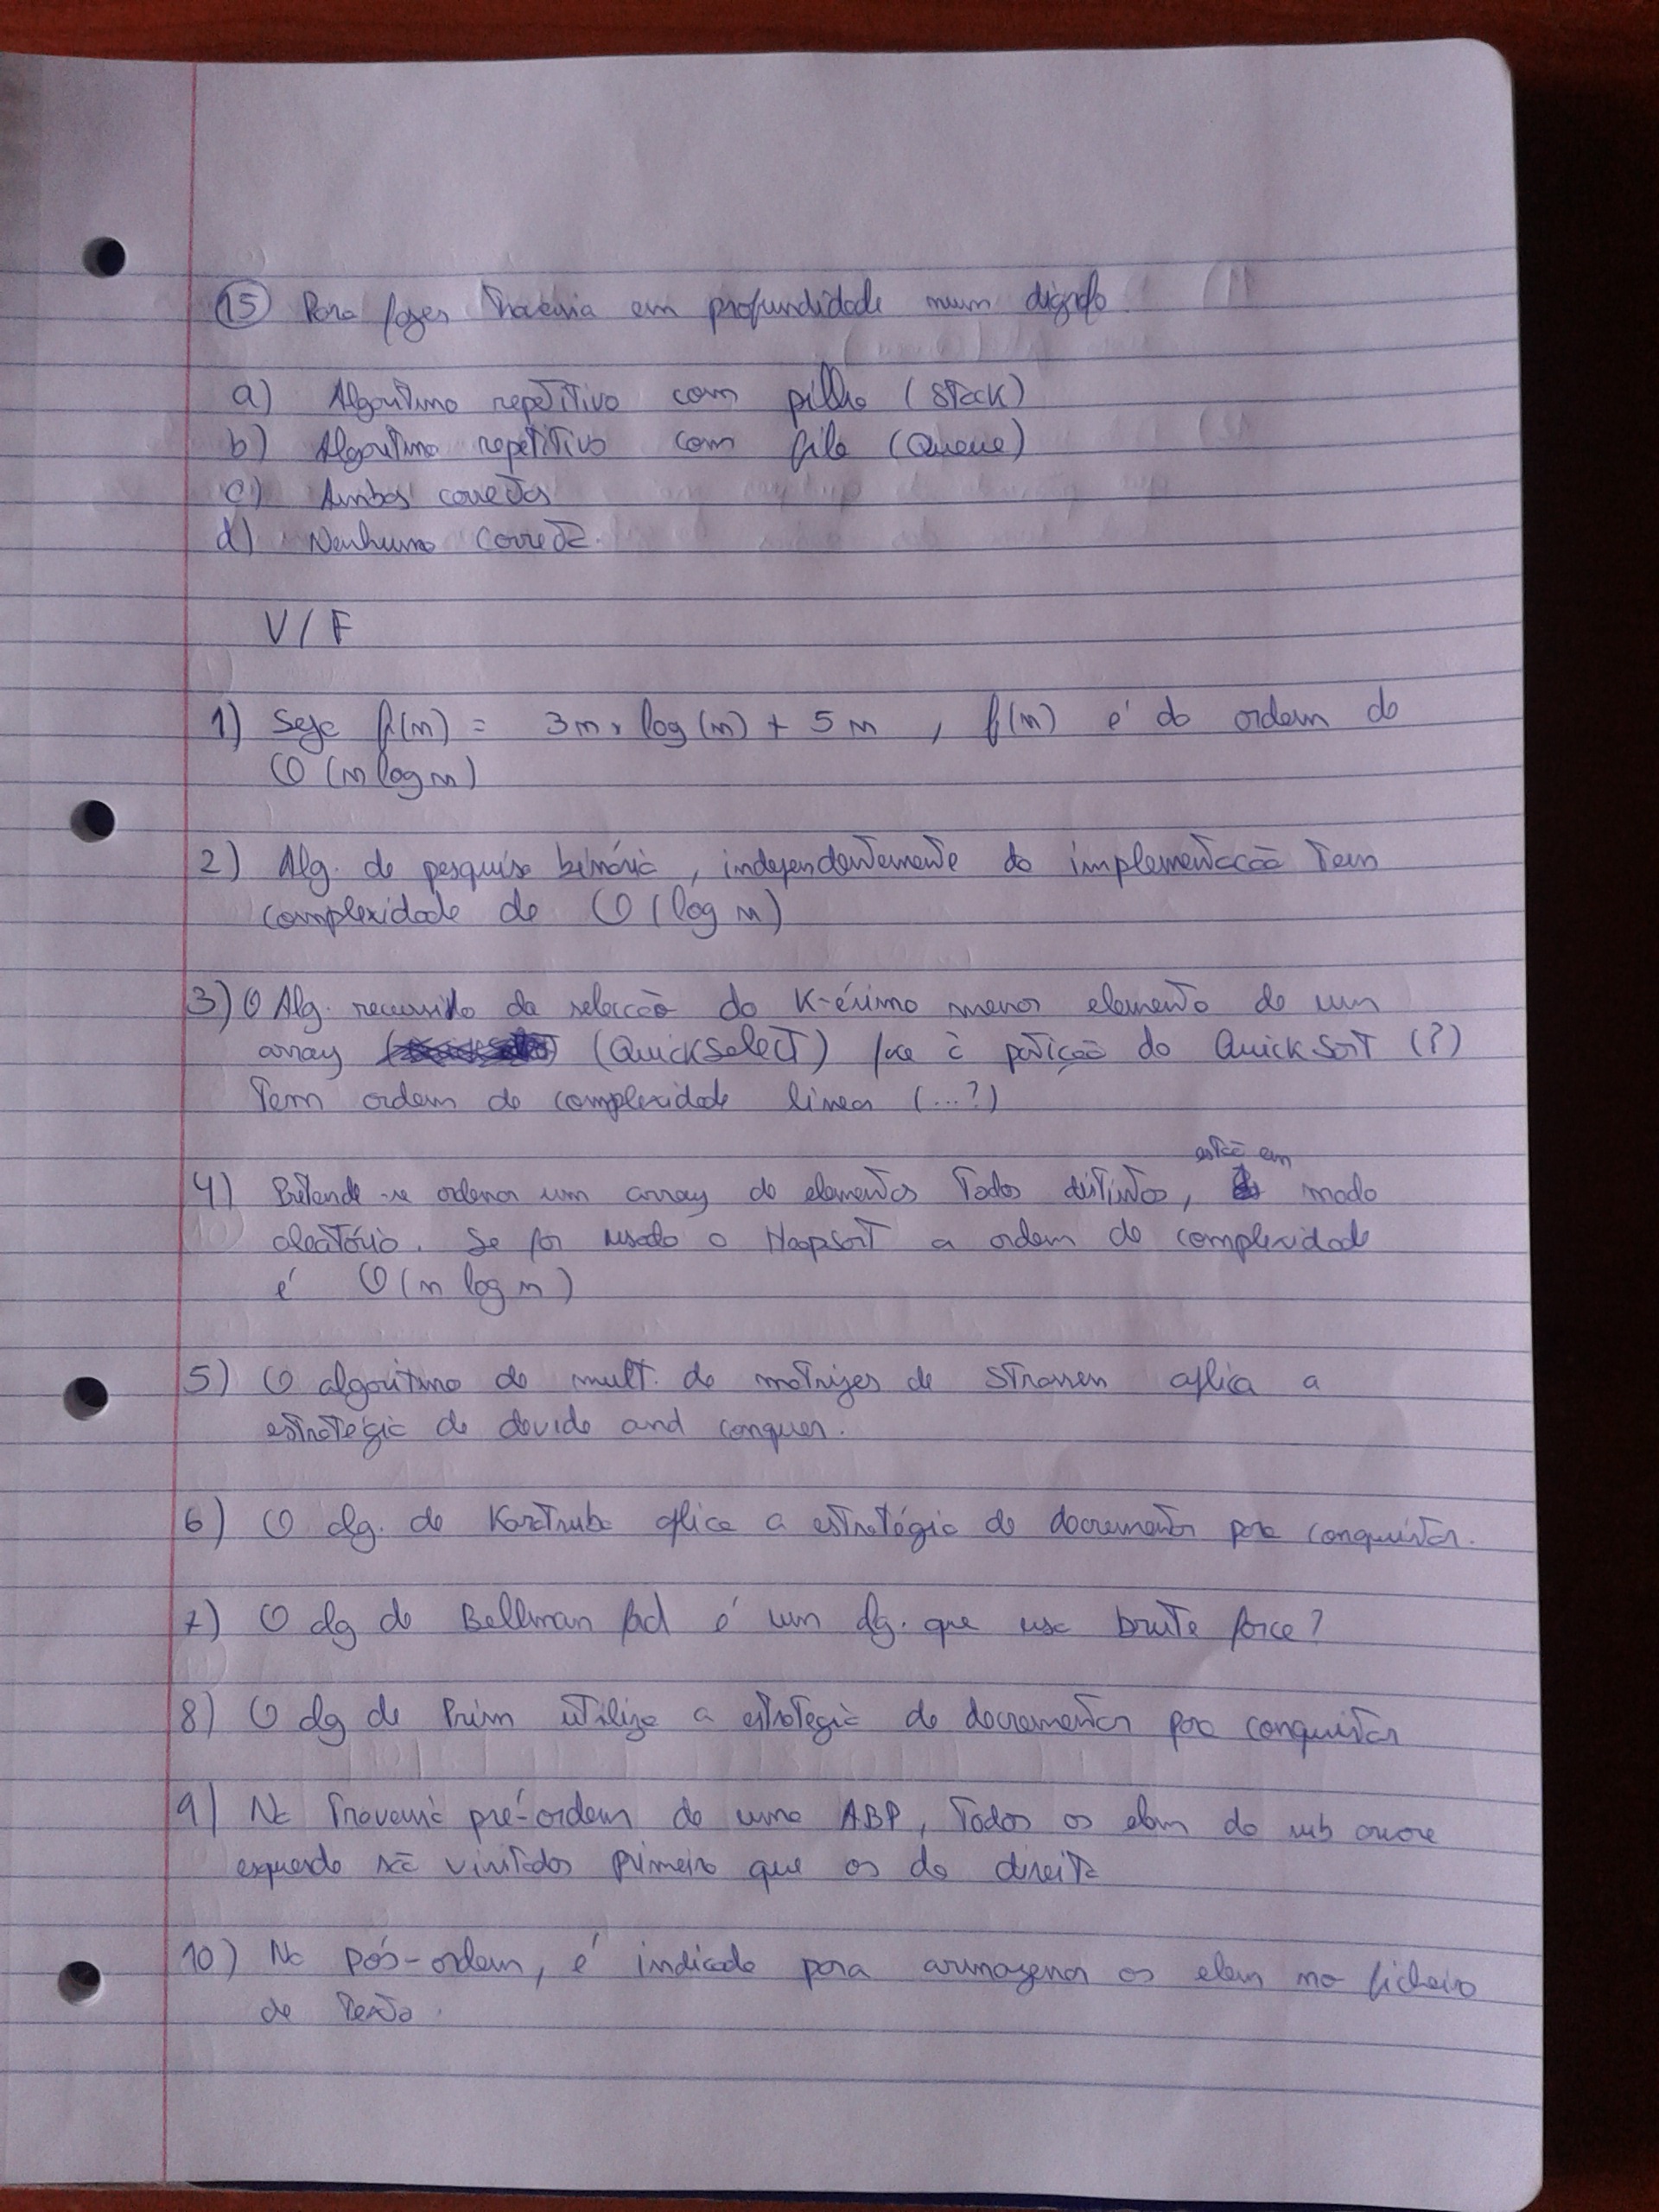 15 Para fazer travessia em profundidade num digrafo
a) Algoritmo repetitivo com pilha (Stack)
b) Algoritmo repetitivo com fila (Queue)
c) Ambas corretas
d) Nenhuma correta.
V/F
1) Seja f(n) = 3n × log(n) + 5n , f(n) é da ordem de
O(n log n)
2) Alg. de pesquisa binária, independentemente da implementação tem
complexidade de O(log n)
3) O Alg. recursivo da selecção do K-ésimo menor elemento de um
array (QuickSelect) face à partição do QuickSort (?)
Tem ordem de complexidade linear (...?)
4) Pretende-se ordenar um array de elementos todos distintos, estão em modo
aleatório. Se for usado o Heapsort a ordem de complexidade
é O(n log n)
5) O algoritmo de mult. de matrizes de Strassen aplica a
estratégia de devide and conquer.
6) O alg. de Karatsuba aplica a estratégia de decrementar para conquistar.
7) O alg de Bellman ford é um alg. que usa brute force?
8) O alg de Prim utiliza a estrategia de decrementar para conquistar
9) Na Travessia pré-ordem de uma ABP, todos os elem da sub arvore
esquerda são visitados primeiro que os da direita
10) Na pós-ordem, é indicado para armazenar os elem no ficheiro
de texto.